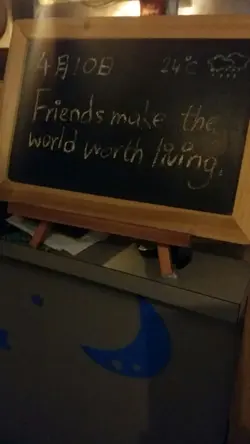 4月10日 24℃
Friends make the
world worth living.